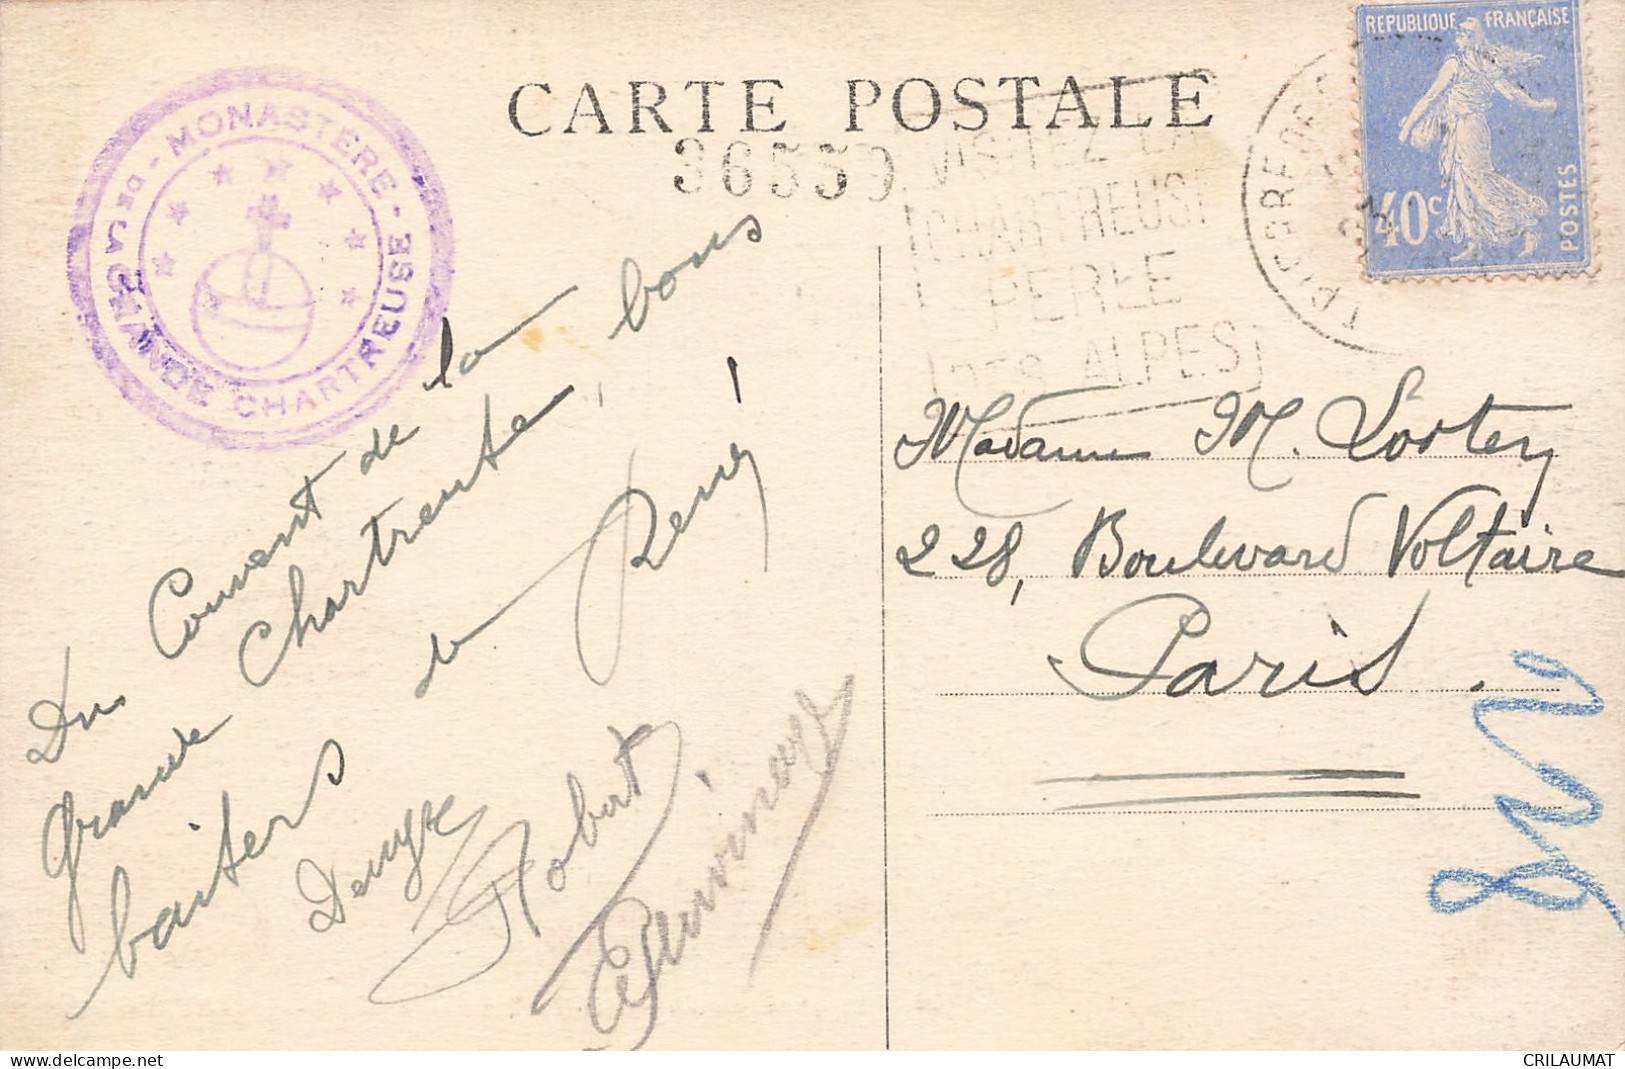 CARTE POSTALE
36559
- MONASTERE - DE LA GRANDE CHARTREUSE
VISITEZ LA
CHARTREUSE
PERLE
DES ALPES
REPUBLIQUE FRANÇAISE
40c
POSTES
Du Couvent de la
Grande Chartreuse, bons
baisers de René
Robert
Madame M. Lortey
228, Boulevard Voltaire
Paris.
www.delcampe.net
CRILAUMAT